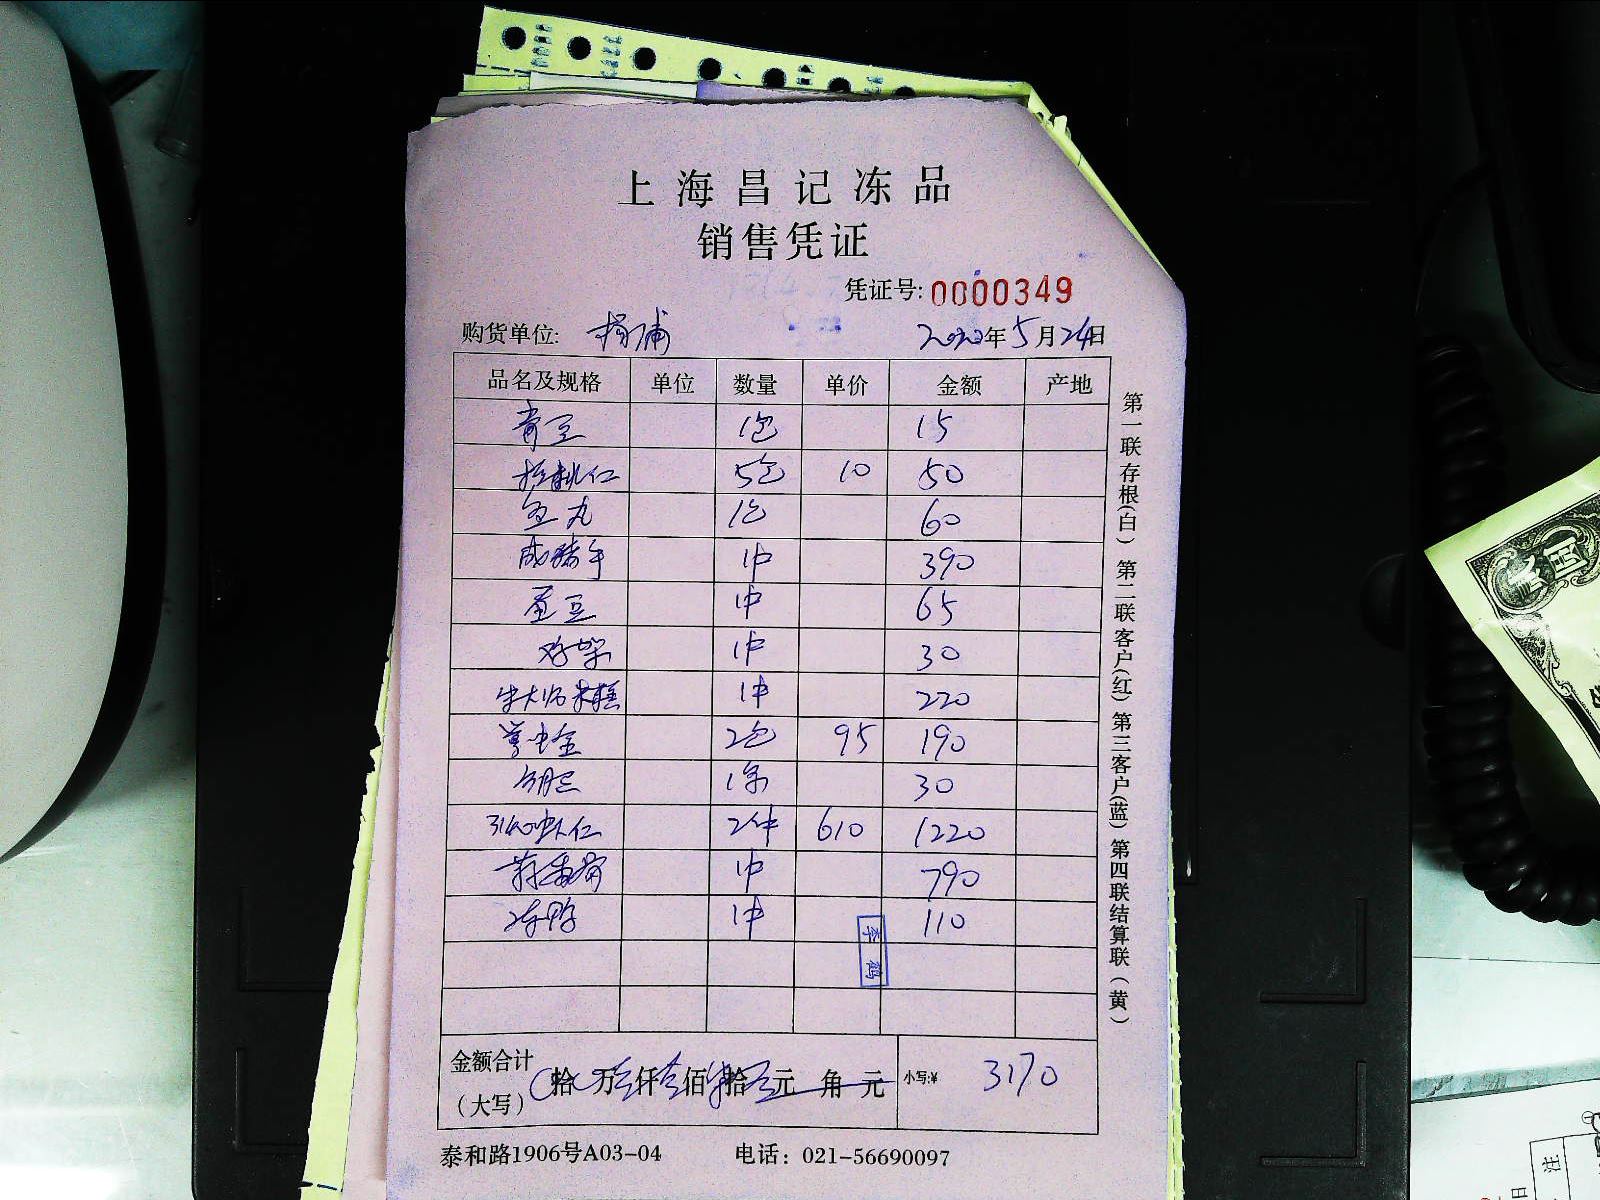 上海昌记冻品
销售凭证
凭证号: 0000349
购货单位: 杨浦 2020年5月24日
品名及规格 单位 数量 单价 金额 产地
青豆 1包 15
核桃仁 5包 10 50
鱼丸 1包 60
1件 390
蚕豆 1件 65
1件 30
1件 220
2包 95 190
1条 30
虾仁 2件 610 1220
1件 790
冻鸭 1件 110
李鹤
金额合计
(大写) 拾 万叁仟壹佰柒拾元 角 元 小写:¥ 3170
泰和路1906号A03-04 电话: 021-56690097
第一联存根(白) 第二联客户(红) 第三客户(蓝) 第四联结算联(黄)
注
日